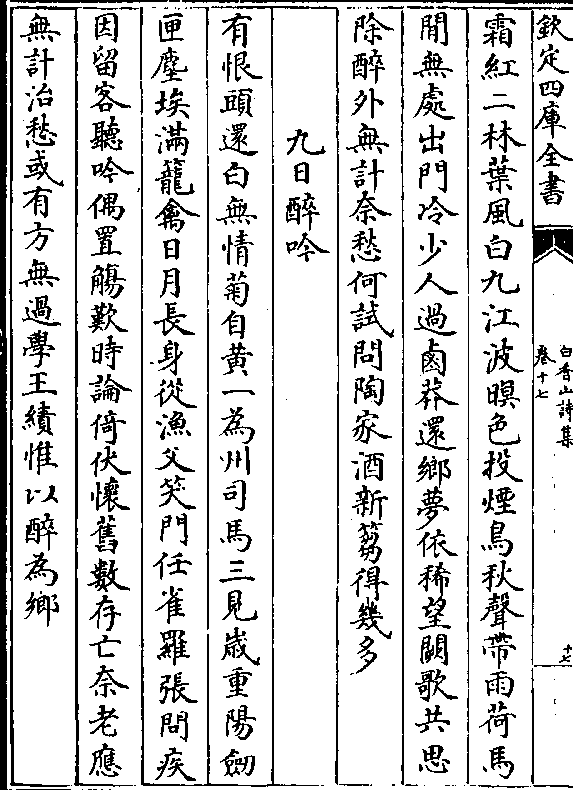 欽定四庫全書
白香山詩集
卷十七
十七
霜紅二林葉風白九江波暝色投煙鳥秋聲帶雨荷馬
閒無處出門冷少人過鹵莽還鄉夢依稀望闕歌共思
除醉外無計奈愁何試問陶家酒新篘得幾多
九日醉吟
有恨頭還白無情菊自黃一為州司馬三見嵗重陽劒
匣塵埃滿籠禽日月長身從漁父笑門任雀羅張問疾
因留客聽吟偶置觴歎時論倚伏懷舊數存亡奈老應
無計治愁或有方無過學王績惟以醉為鄉